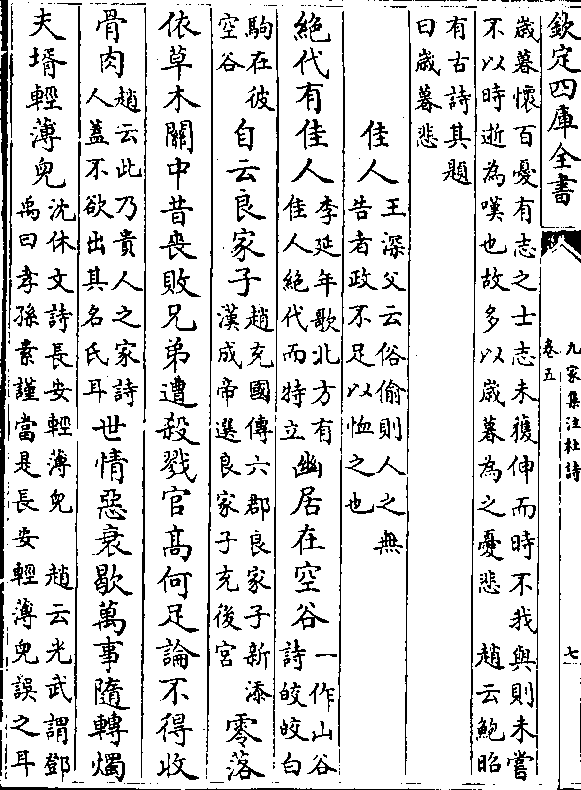 欽定四庫全書
九家集注杜詩
卷五
七
歲暮懷百憂有志之士志未獲伸而時不我與則未嘗
不以時逝為嘆也故多以歲暮為之憂悲 趙云鮑昭
有古詩其題
曰歲暮悲
佳人王深父云俗偷則人之無
告者政不足以恤之也
絶代有佳人李延年歌北方有
佳人絶代而特立幽居在空谷一作山谷
詩皎皎白
駒在彼
空谷自云良家子趙充國傳六郡良家子新添
漢成帝選良家子充後宮零落
依草木關中昔喪敗兄弟遭殺戮官髙何足論不得收
骨肉趙云此乃貴人之家詩
人蓋不欲出其名氏耳世情惡衰歇萬事隨轉燭
夫壻輕薄兒沈休文詩長安輕薄兒 趙云光武謂鄧
禹曰孝孫素謹當是長安輕薄兒誤之耳